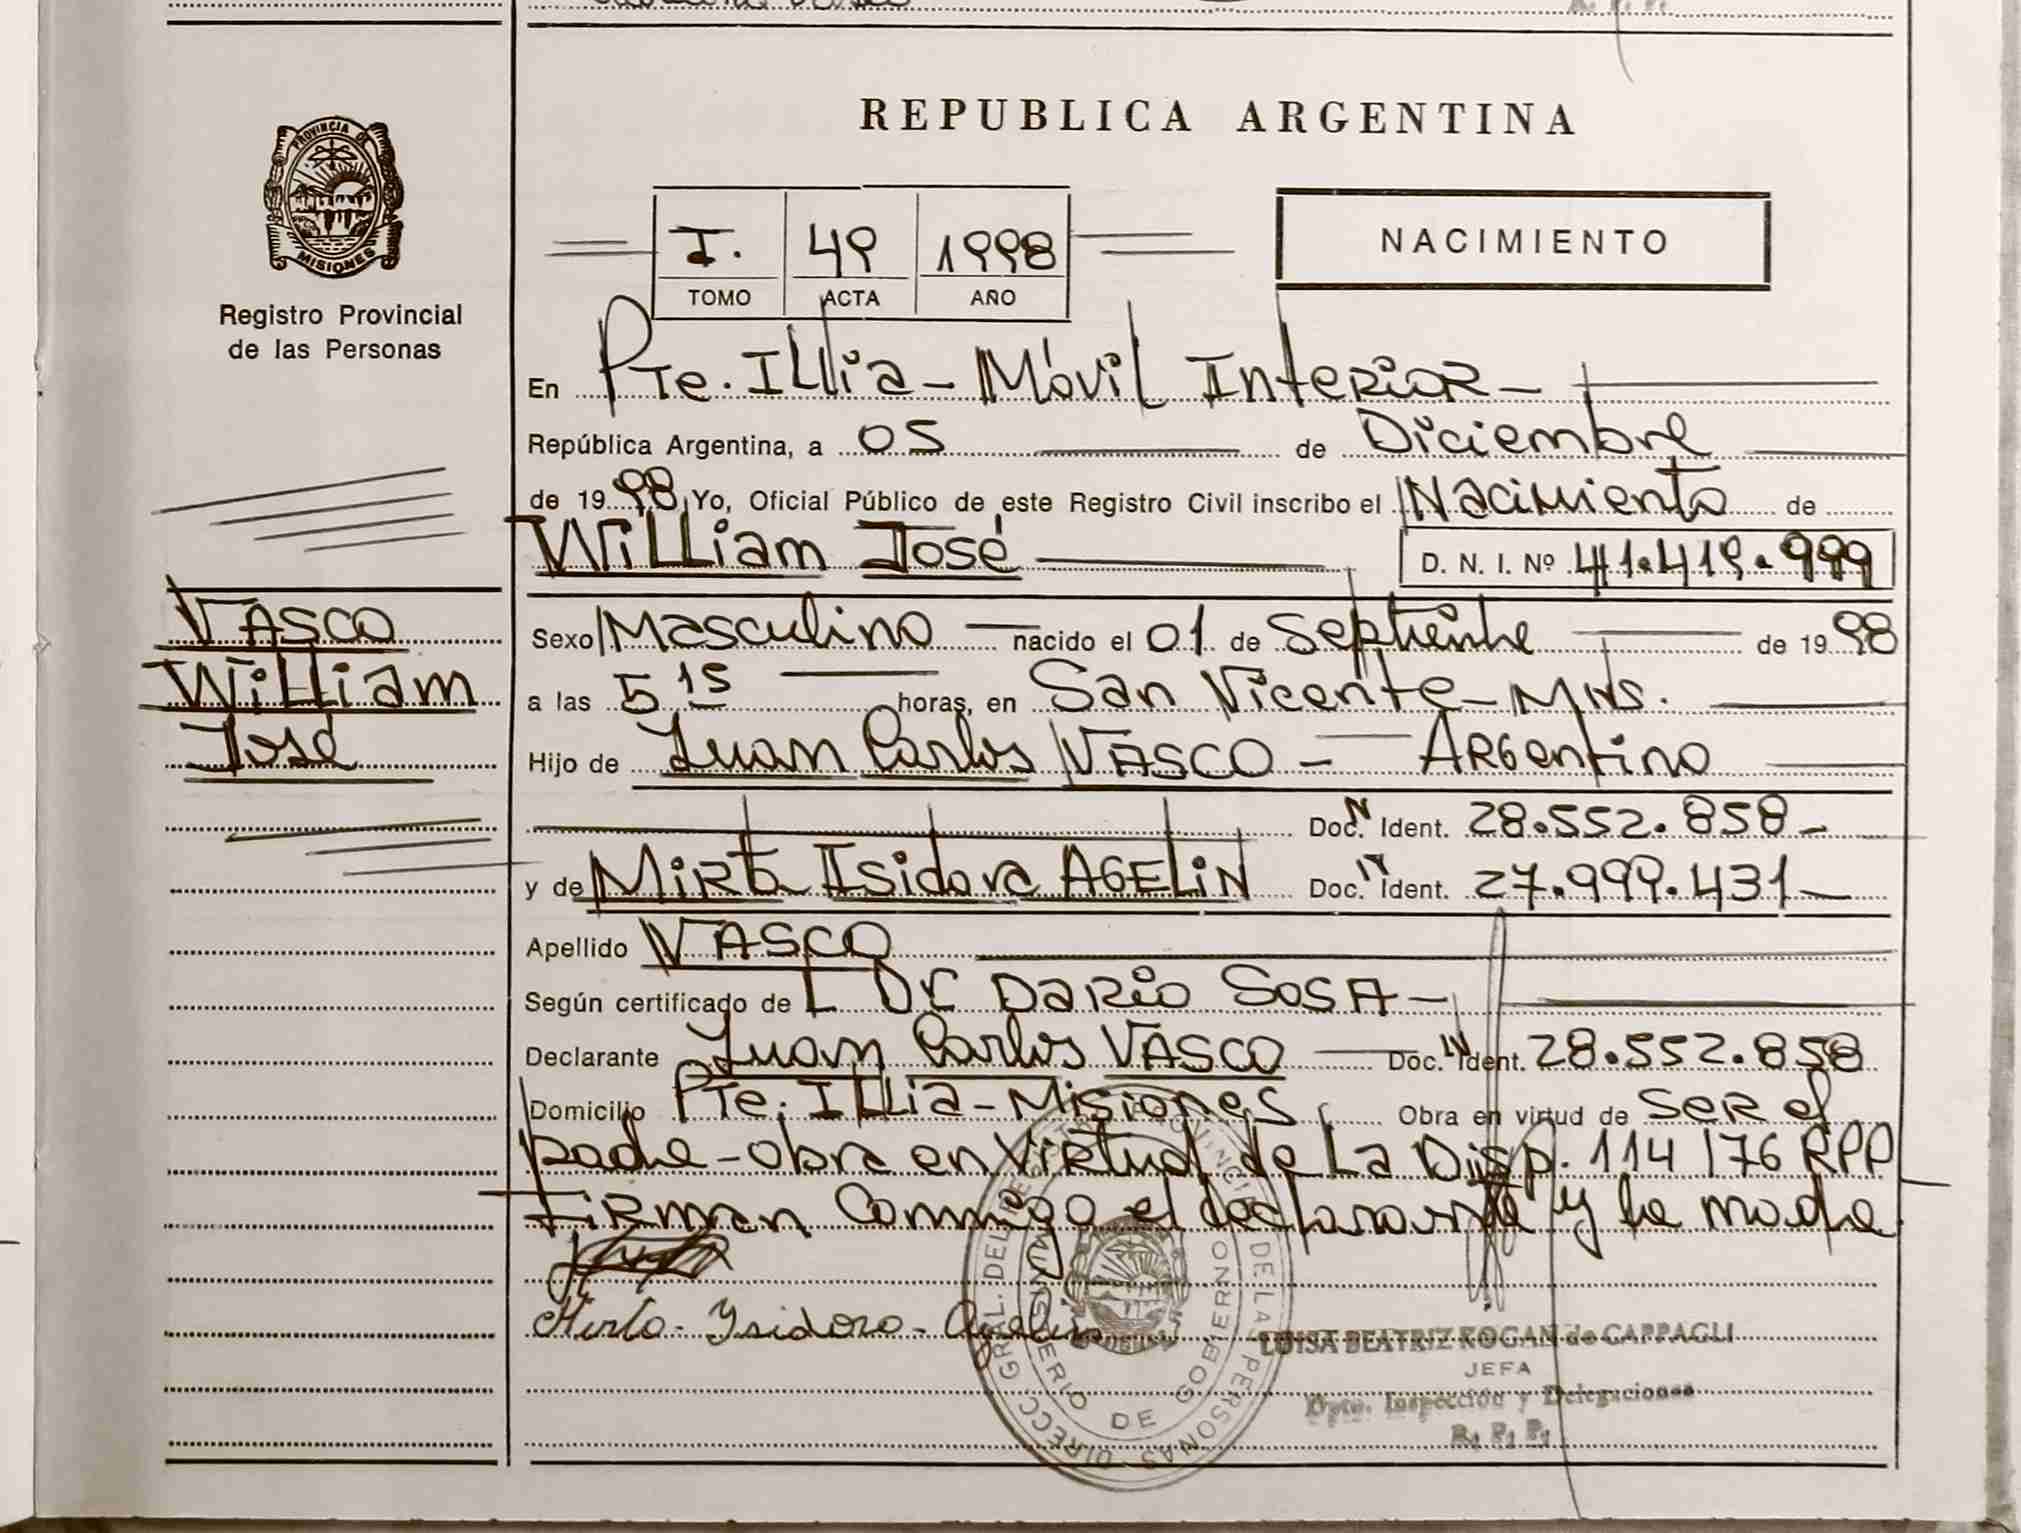 REPUBLICA ARGENTINA
PROVINCIA DE
MISIONES
Registro Provincial
de las Personas
I. 49 1998
TOMO ACTA AÑO
NACIMIENTO
En Pte. Illia - Móvil Interior -
República Argentina, a 05 de Diciembre
de 1998 Yo, Oficial Público de este Registro Civil inscribo el Nacimiento de
William José D. N. I. Nº 41.419.999
VASCO
William
José
Sexo Masculino nacido el 01 de Septiembre de 1998
a las 5 15 horas, en San Vicente - Mns.
Hijo de Juan Carlos VASCO - Argentino
Doc. N Ident. 28.552.858 -
y de Mirta Isidora AGELIN Doc. N Ident. 27.999.431 -
Apellido VASCO
Según certificado de L Dr Dario SOSA -
Declarante Juan Carlos VASCO Doc. N Ident. 28.552.858
Domicilio Pte. Illia - Misiones Obra en virtud de ser el
padre - obra en virtud de la Disp. 114/76 RPP
Firman Conmigo el declarante y la madre
Mirta - Ysidora - Agelin
DIRECC. GRAL. DEL REGISTRO PROVINCIAL DE LAS PERSONAS
MINISTERIO DE GOBIERNO
LUISA BEATRIZ KOGAN de CAPPAGLI
JEFA
Dpto. Inspección y Delegaciones
R. P. P.